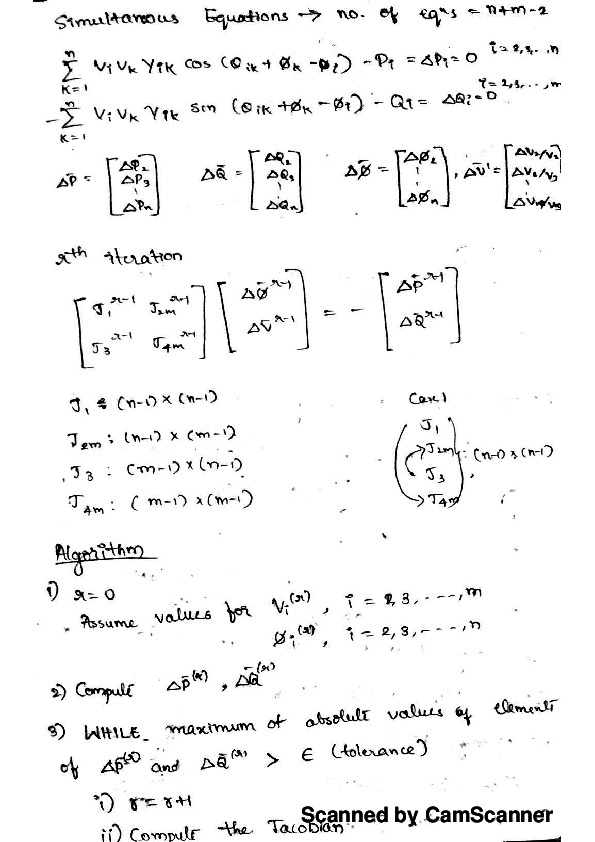 Simultaneous Equations → no. of eqns = n+m-2
n Σ k=1 Vi Vk Yik cos (θik + øk - øi) - Pi = ΔPi = 0 i = 2,3,..,n
- n Σ k=1 Vi Vk Yik sin (θik + øk - øi) - Qi = ΔQi = 0 i = 2,3,...,m
ΔP̄ = [ΔP2 ΔP3 ⋮ ΔPn] ΔQ̄ = [ΔQ2 ΔQ3 ⋮ ΔQn] Δø̄ = [Δø2 ⋮ Δøn], ΔV̄' = [ΔV2/V2 ΔV3/V3 ⋮]
rth iteration
[J1^r-1 J2m^r-1] [Δø̄^r-1] = - [ΔP̄^r-1]
[J3^r-1 J4m^r-1] [ΔV̄^r-1] [ΔQ̄^r-1]
J1 : (n-1) × (n-1) Case 1
J2m : (n-1) × (m-1) J1
J3 : (m-1) × (n-1) J2m : (n-1) × (n-1)
J4m : (m-1) × (m-1) J3
J4m
Algorithm
1) r = 0
Assume values for Vi^(r), i = 2,3,----,m
øi^(r), i = 2,3,----,n
2) Compute ΔP̄^(r), ΔQ̄^(r)
3) WHILE maximum of absolute values of elements
of ΔP̄^(r) and ΔQ̄^(r) > ∈ (tolerance)
i) r = r+1
ii) Compute the Jacobian
Scanned by CamScanner